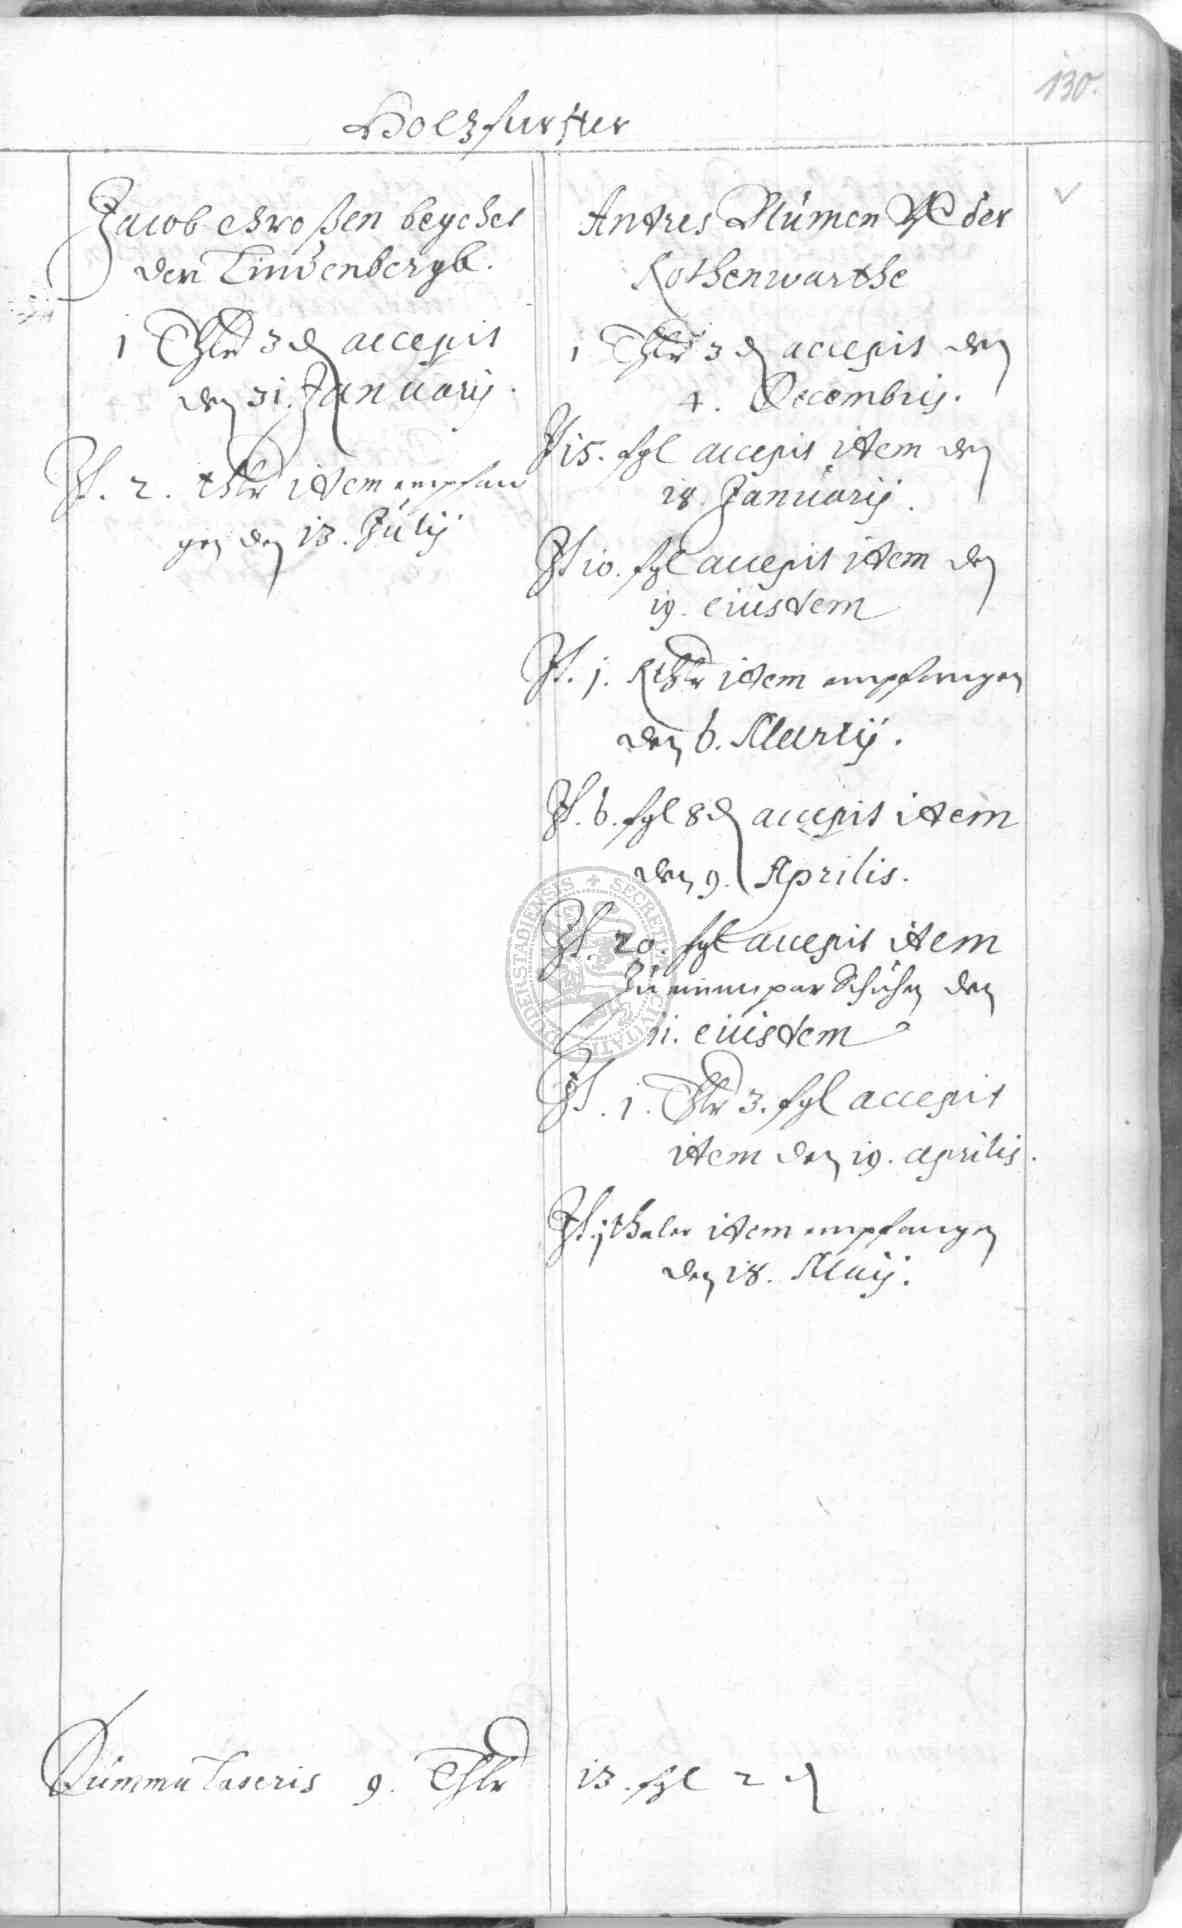 130.
Holzfurster
Jacob Großen beyches
den Lindenbergk.
1 Thlr 3 ₰ accepit
den 31. Januarij.
It. 2. thlr item empfan
gen den 13. Julij
Antres Blumen der
Rothenwarthe
1 Thlr 3 ₰ accepit den
4. Decembrij.
It 15. sgl accepit item den
18. Januarij.
It 10. sgl accepit item den
19. eiusdem
It. 1. Rthlr item empfangen
den 6. Martij.
It. 6. sgl 8 ₰ accepit item
den 9. Aprilis.
It. 20. sgl accepit item
Zu einem par Schuhen den
11. eiusdem
It. 1. Thlr 3. sgl accepit
item den 19. aprilis.
It. 1 thaler item empfangen
den 18. Maij.
Summa Lateris 9. Thlr 13. sgl 2 ₰
DUDERSTADIENSIS + SECRETUM CIVITATIS